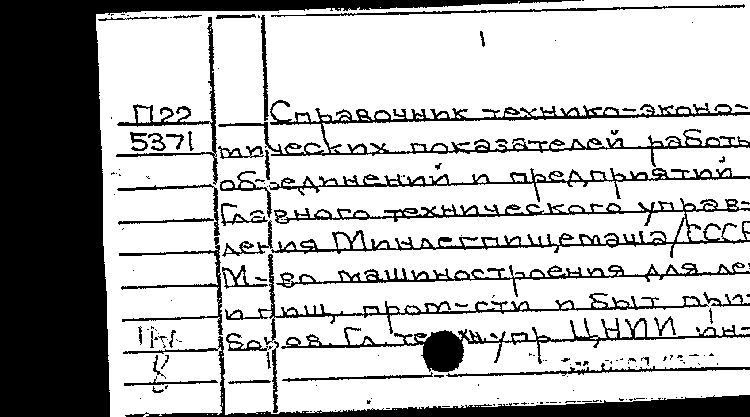 1
П22
5371
Справочник технико-эконо-
мических показателей работы
объединений и предприятий
Главного технического управ-
ления Минлегпищемаша/СССР
М-во машиностроения для лег
и пищ. пром-сти и быт при-
боров. Гл. техн упр ЦНИИ ин-
8